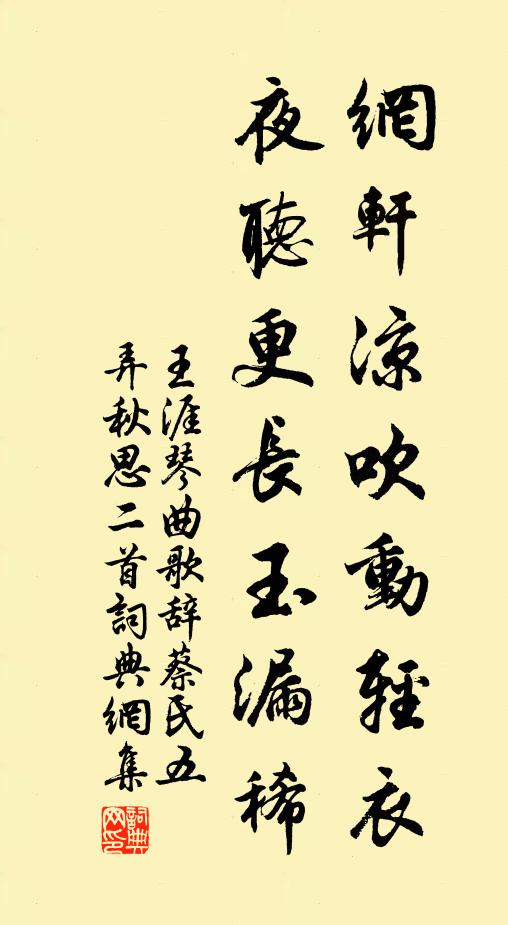 網軒涼吹動輕衣
夜聽更長玉漏稀
王涯琴曲歌辭蔡氏五
弄秋思二首詞典網集
詞典
网印